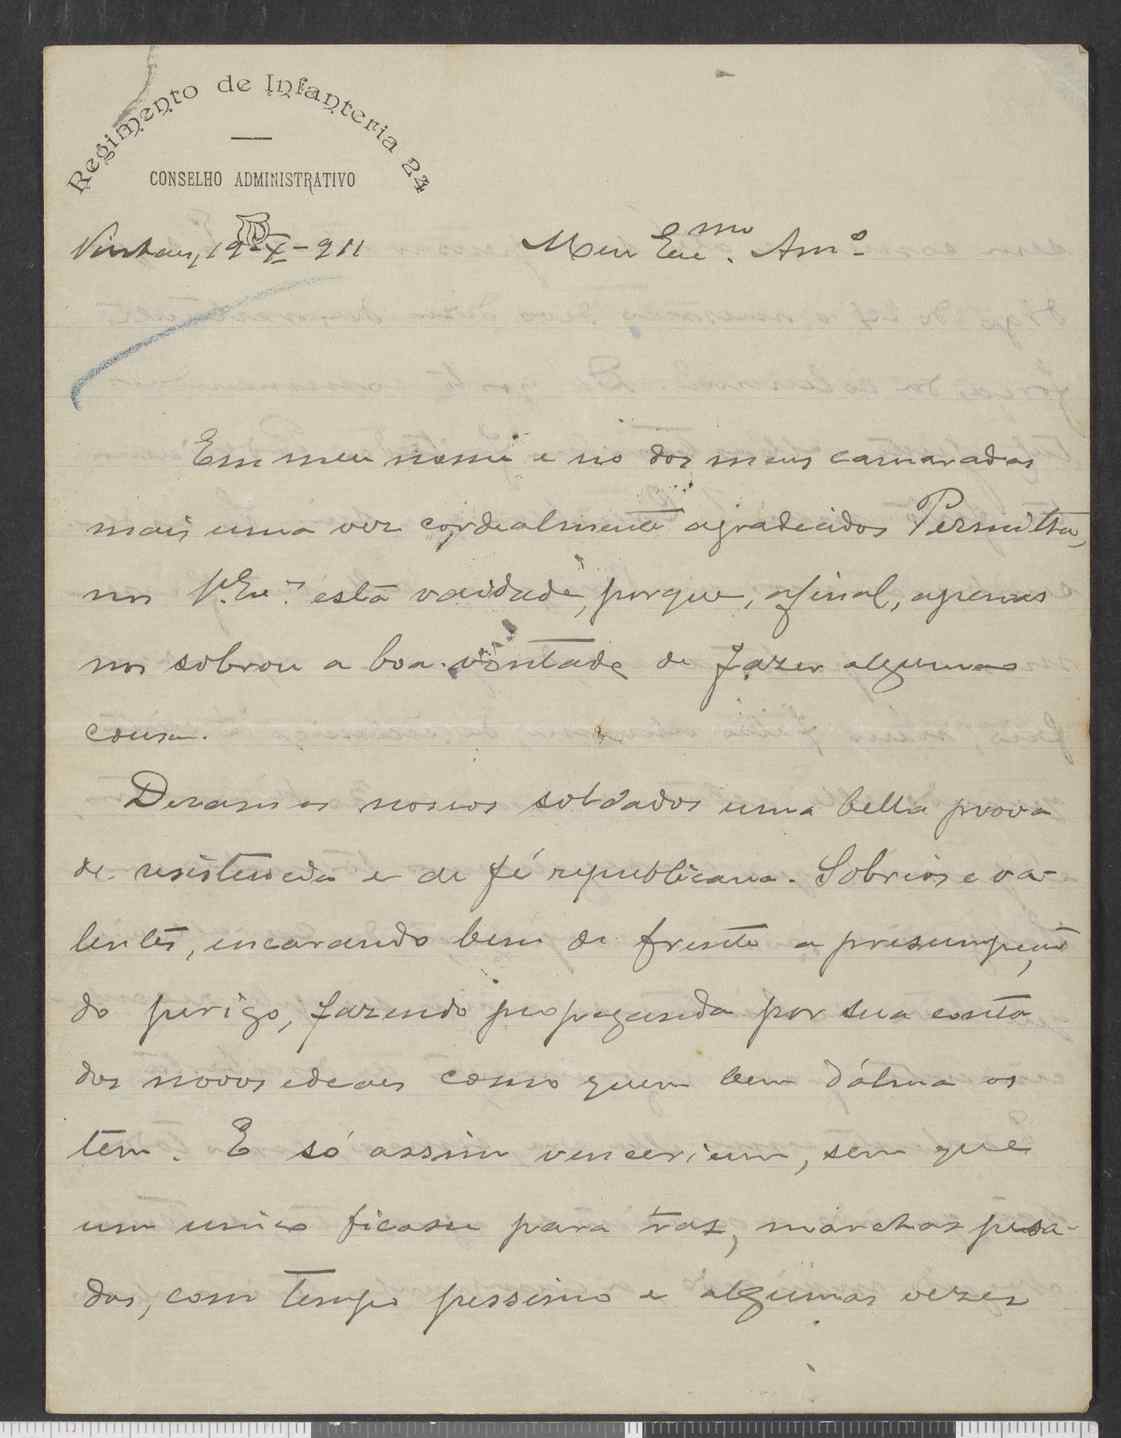 Regimento de Infanteria 24
CONSELHO ADMINISTRATIVO
Vinhaes, 19-X-911
Meu Exmo. Amo.
Em meu nome e no dos meus camaradas
mais uma vez cordealmente agradecidos Permitta,
nos V. Exa. esta vaidade, porque, afinal, apenas
nos sobrou a boa vontade de fazer algumas
cousa.
Deram os nossos soldados uma bella prova
de resistencia e de fé republicana. Sobrios e va-
lentes, encarando bem de frente a presumpção
do perigo, fazendo propaganda por sua conta
dos novos ideaes como quem bem d'alma os
tem. E só assim venceriam, sem que
um unico ficasse para traz, marchas pesa-
das, com tempo pessimo e algumas vezes